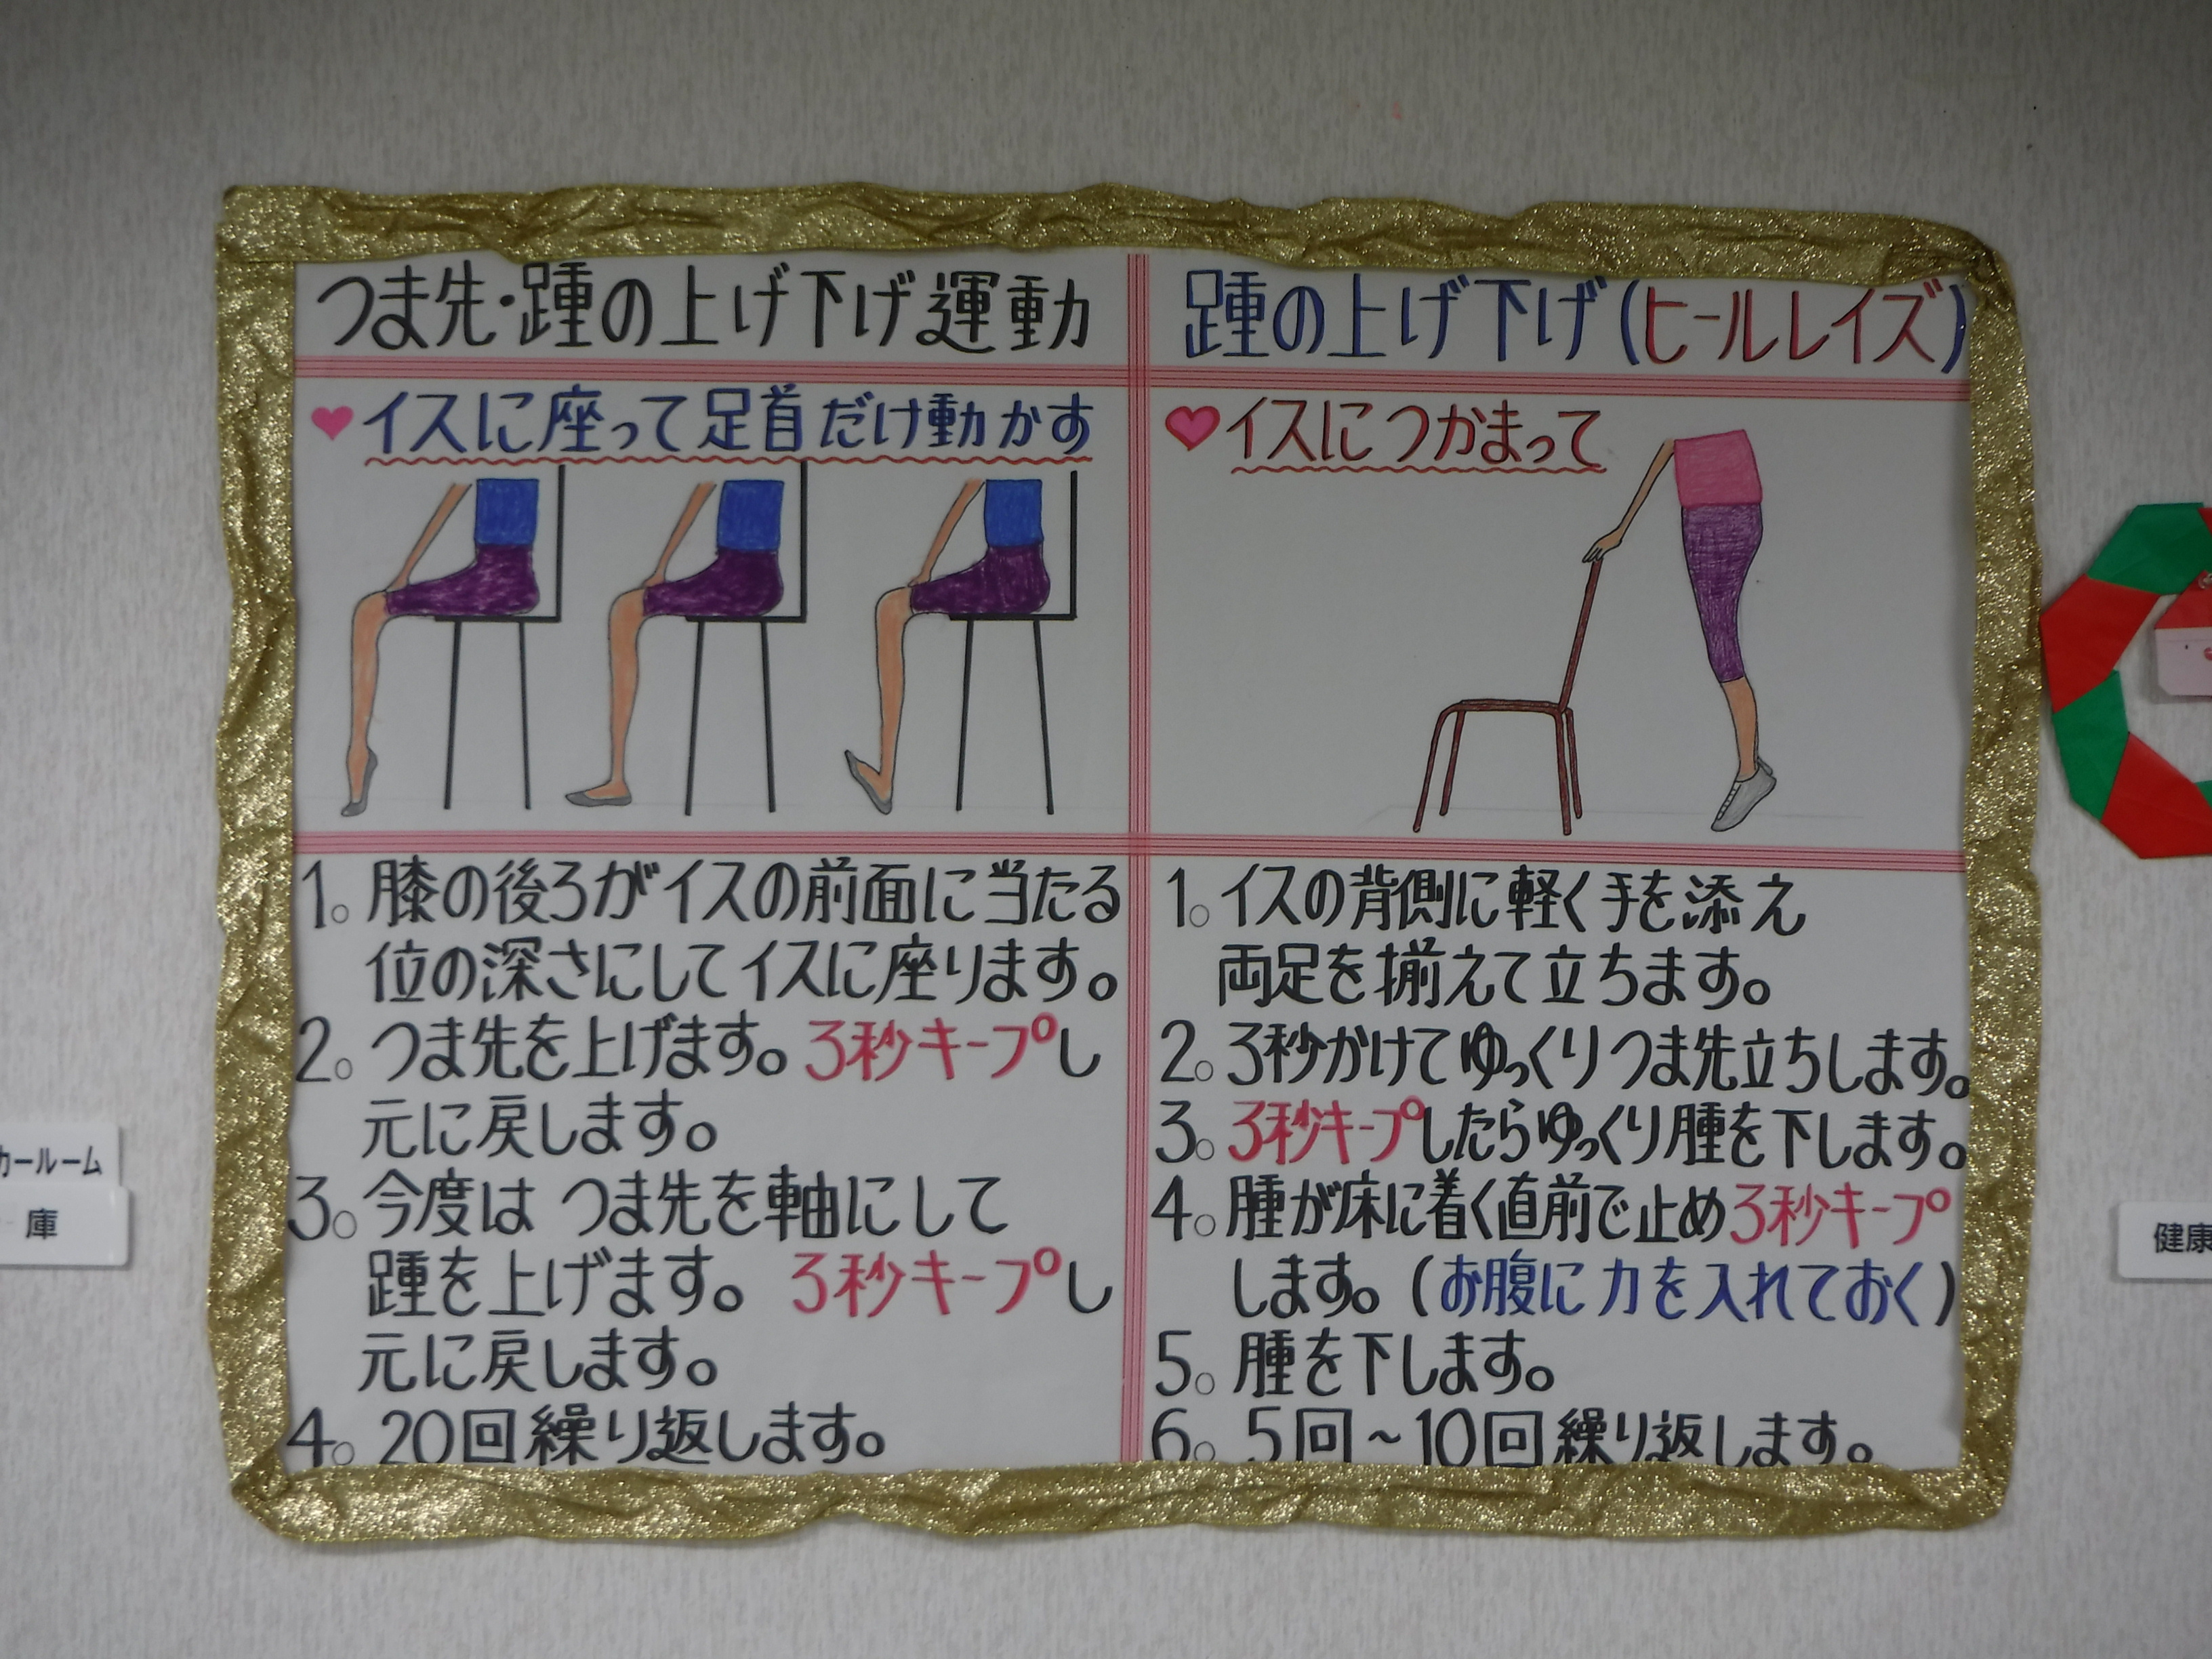 つま先・踵の上げ下げ運動
イスに座って足首だけ動かす
1。膝の後ろがイスの前面に当たる
位の深さにしてイスに座ります。
2。つま先を上げます。3秒キープし
元に戻します。
3。今度はつま先を軸にして
踵を上げます。3秒キープし
元に戻します。
4。20回繰り返します。
踵の上げ下げ(ヒールレイズ)
イスにつかまって
1。イスの背側に軽く手を添え
両足を揃えて立ちます。
2。3秒かけてゆっくりつま先立ちします。
3。3秒キープしたらゆっくり腫を下します。
4。腫が床に着く直前で止め3秒キープ
します。(お腹に力を入れておく)
5。腫を下します。
6。5回~10回繰り返します。
カールーム
庫
健康